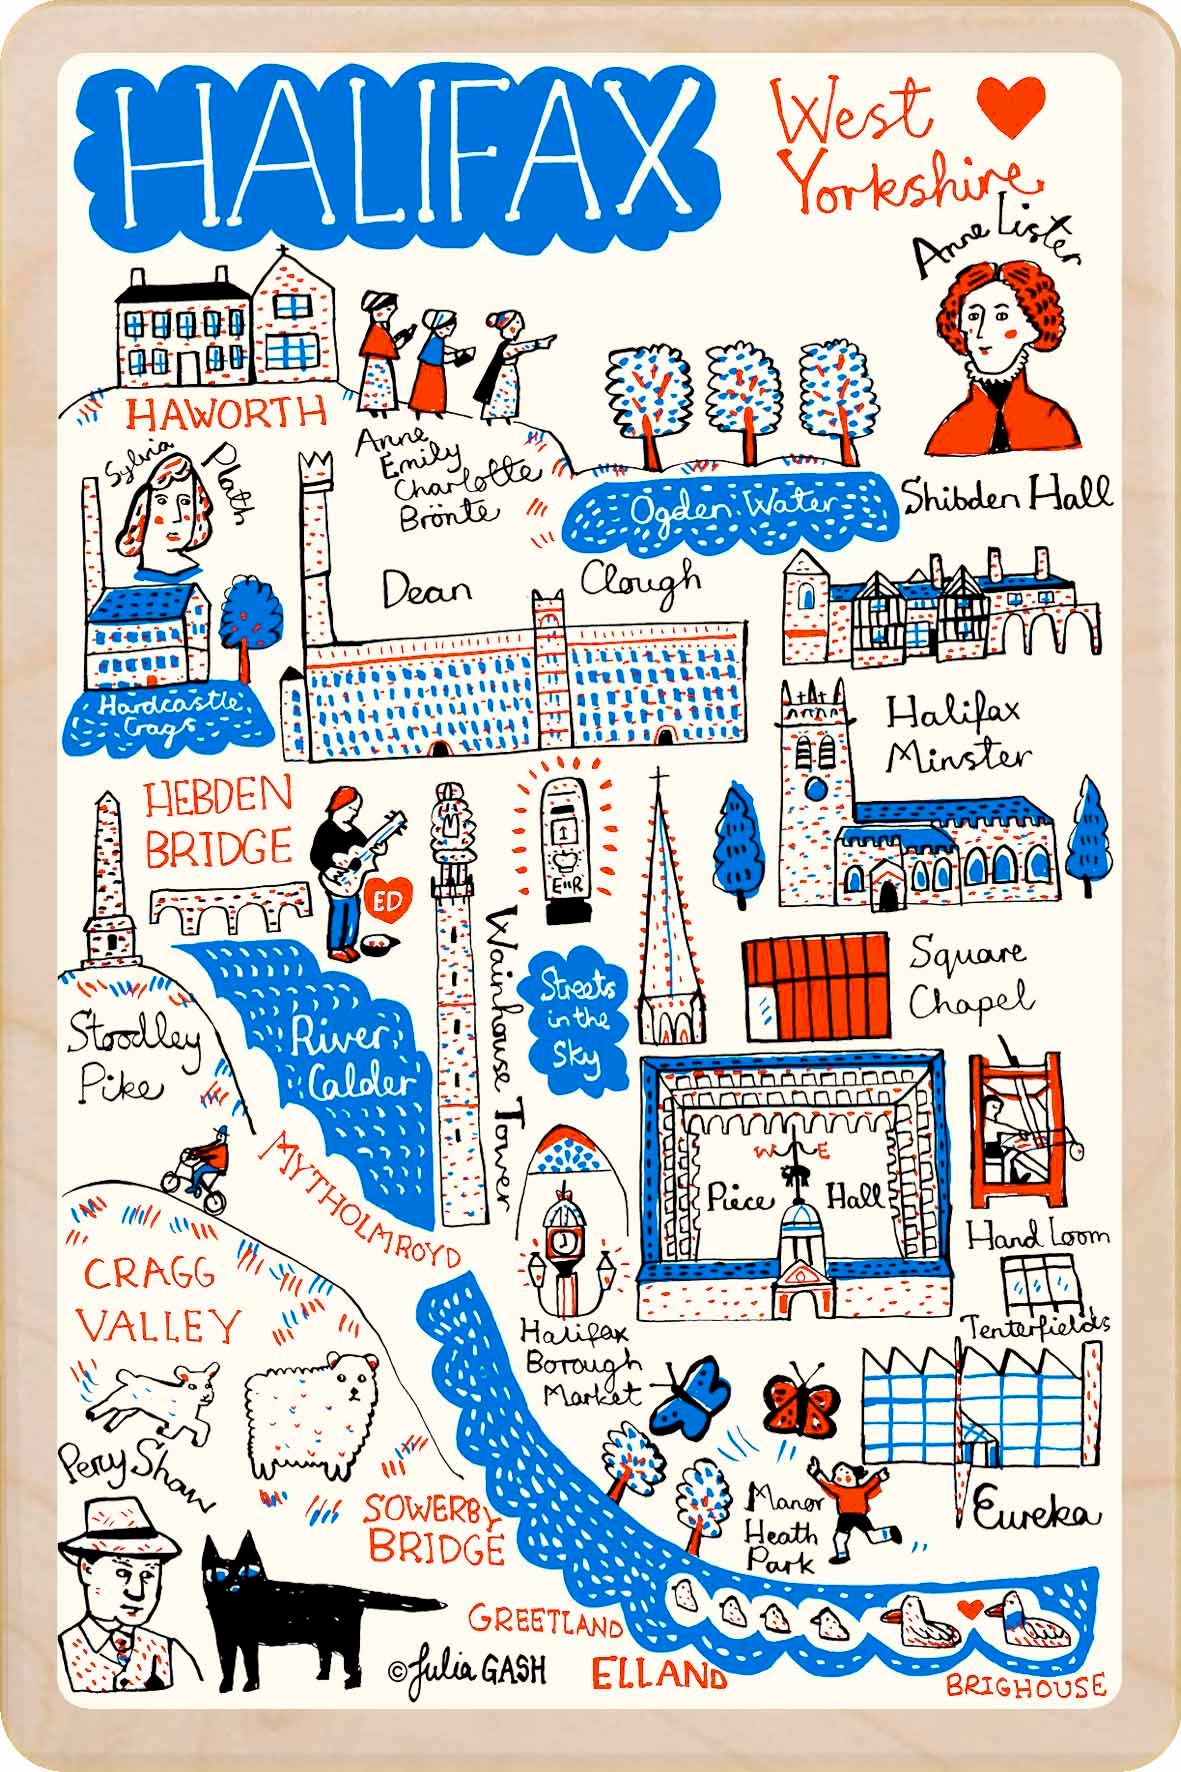 HALIFAX
West
Yorkshire
Anne Lister
HAWORTH
Anne
Emily
Charlotte
Brönte
Sylvia Plath
Ogden Water
Shibden Hall
Dean Clough
Hardcastle
Crags
Halifax
Minster
HEBDEN
BRIDGE
ED
EIIR
Wainhouse Tower
Streets
in the
Sky
Square
Chapel
Stoodley
Pike
River
Calder
MYTHOLMROYD
W E
Piece Hall
Hand Loom
CRAGG
VALLEY
Halifax
Borough
Market
Tenterfields
Percy Shaw
SOWERBY
BRIDGE
Manor
Heath
Park
Eureka
GREETLAND
©Julia GASH
ELLAND
BRIGHOUSE